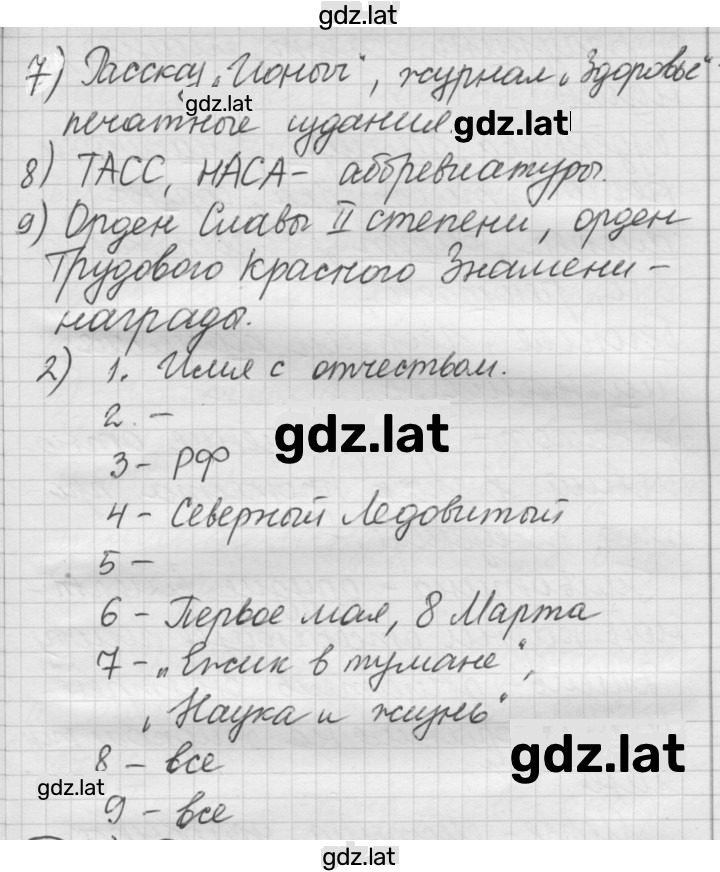 gdz.lat
7) Рассказ „Ионыч“, журнал „Здоровье“ -
gdz.lat
печатные издания.
gdz.lat
8) ТАСС, НАСА - аббревиатуры.
9) Орден Славы II степени, орден
Трудового Красного Знамени -
награды.
2) 1. Имя с отчеством.
2. -
gdz.lat
3 - РФ
4 - Северный Ледовитый
5 -
6 - Первое мая, 8 Марта
7 - „Ежик в тумане“,
„Наука и жизнь“
gdz.lat
8 - все
gdz.lat
9 - все
gdz.lat